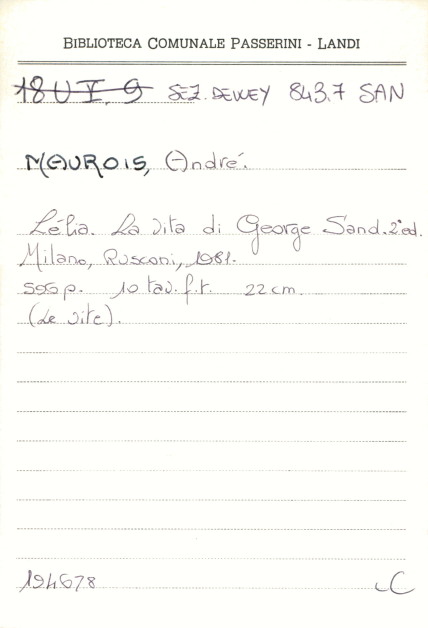 BIBLIOTECA COMUNALE PASSERINI - LANDI
18 U I. 9 SEZ. DEWEY 843.7 SAN
MAUROIS, André.
Lélia. La vita di George Sand. 2ª ed.
Milano, Rusconi, 1981.
595 p. 10 tav. f.t. 22 cm.
(Le vite).
194678 LC